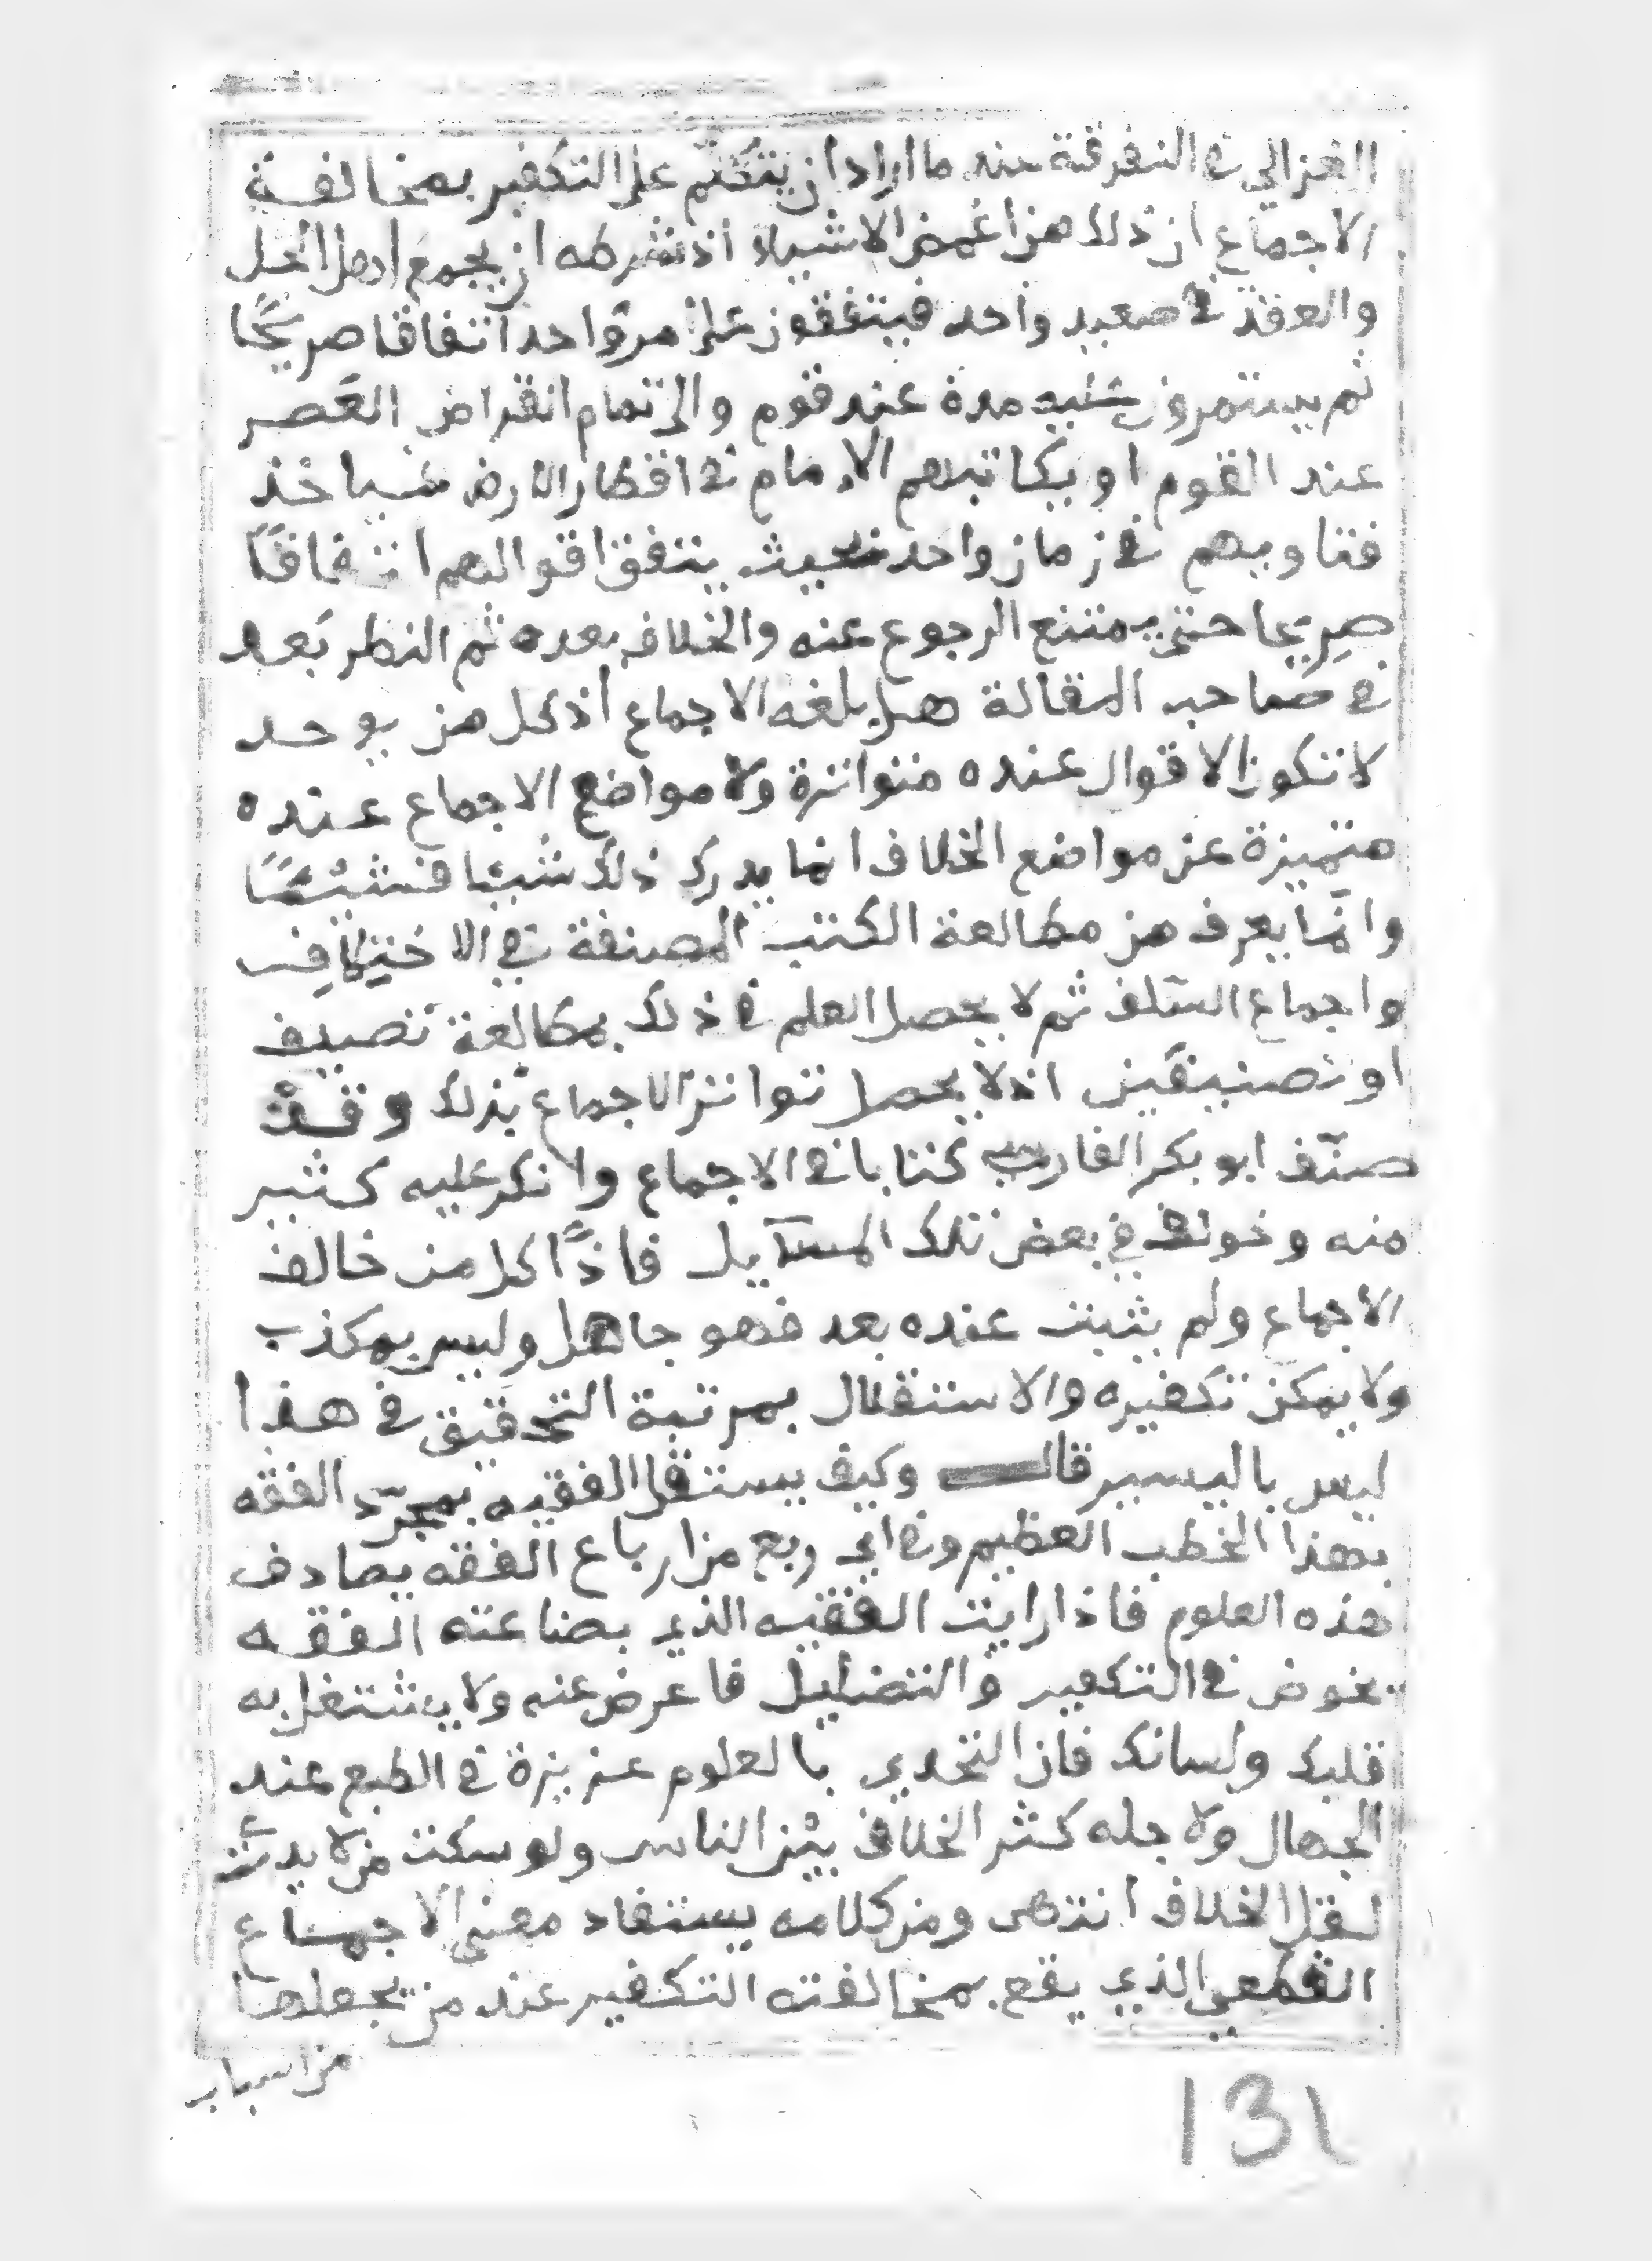 الغزالي في التفرقة عند ما اراد ان يتكلم على التكفير بمخالفة
الاجماع ان ذلك من اغمض الاشياء اذ شرطه ان يجمع اهل الحل
والعقد في صعيد واحد فيتفقون على امر واحد اتفاقا صريحًا
ثم يستمرون عليه مدة عند قوم والى تمام انقراض العصر
عند القوم او يكاتبهم الإمام في اقطار الارض فياخذ
فتاويهم في زمان واحد بحيث يتفق اقوالهم اتفاقًا
صريحا حتى يمتنع الرجوع عنه والخلاف بعده ثم النظر بعد
في صاحب المقالة هل بلغه الاجماع اذ كل من يوحد
لا تكون الاقوال عنده متواترة ولا مواضع الاجماع عنده
متميزة عن مواضع الخلاف انما يدرك ذلك شيئا فشيئًا
وانما يعرف من مطالعة الكتب المصنفة في الاختلاف
واجماع السلف ثم لا يحصل العلم في ذلك بمطالعة تصنيف
او تصنيفين اذ لا يحصل تواتر الاجماع بذلك وقد
صنّف ابو بكر الفارسي كتابا في الاجماع وانكر عليه كثير
منه وخولف في بعض تلك المسآيل فاذًا كل من خالف
الاجماع ولم يثبت عنده بعد فهو جاهل وليس بمكذب
ولا يمكن تكفيره والاستقلال بمرتبة التحقيق في هذا
ليس باليسير قال وكيف يستقل الفقيه بمجرّد الفقه
بهذا الخطب العظيم وفي اي ربع من ارباع الفقه يصادف
هذه العلوم فاذا رايت الفقيه الذي بضاعته الفقه
يخوض في التكفير والتضليل فاعرض عنه ولا يشتغل به
قلبك ولسانك فان التحدي بالعلوم عزيزة في الطبع عند
الجهال ولاجله كثر الخلاف بين الناس ولو سكت من لا يدري
لقل الخلاف انتهى ومن كلامه يستفاد معنى الاجماع
القطعي الذي يقع بمخالفته التكفير عند من يجعلها
من اسباب
131